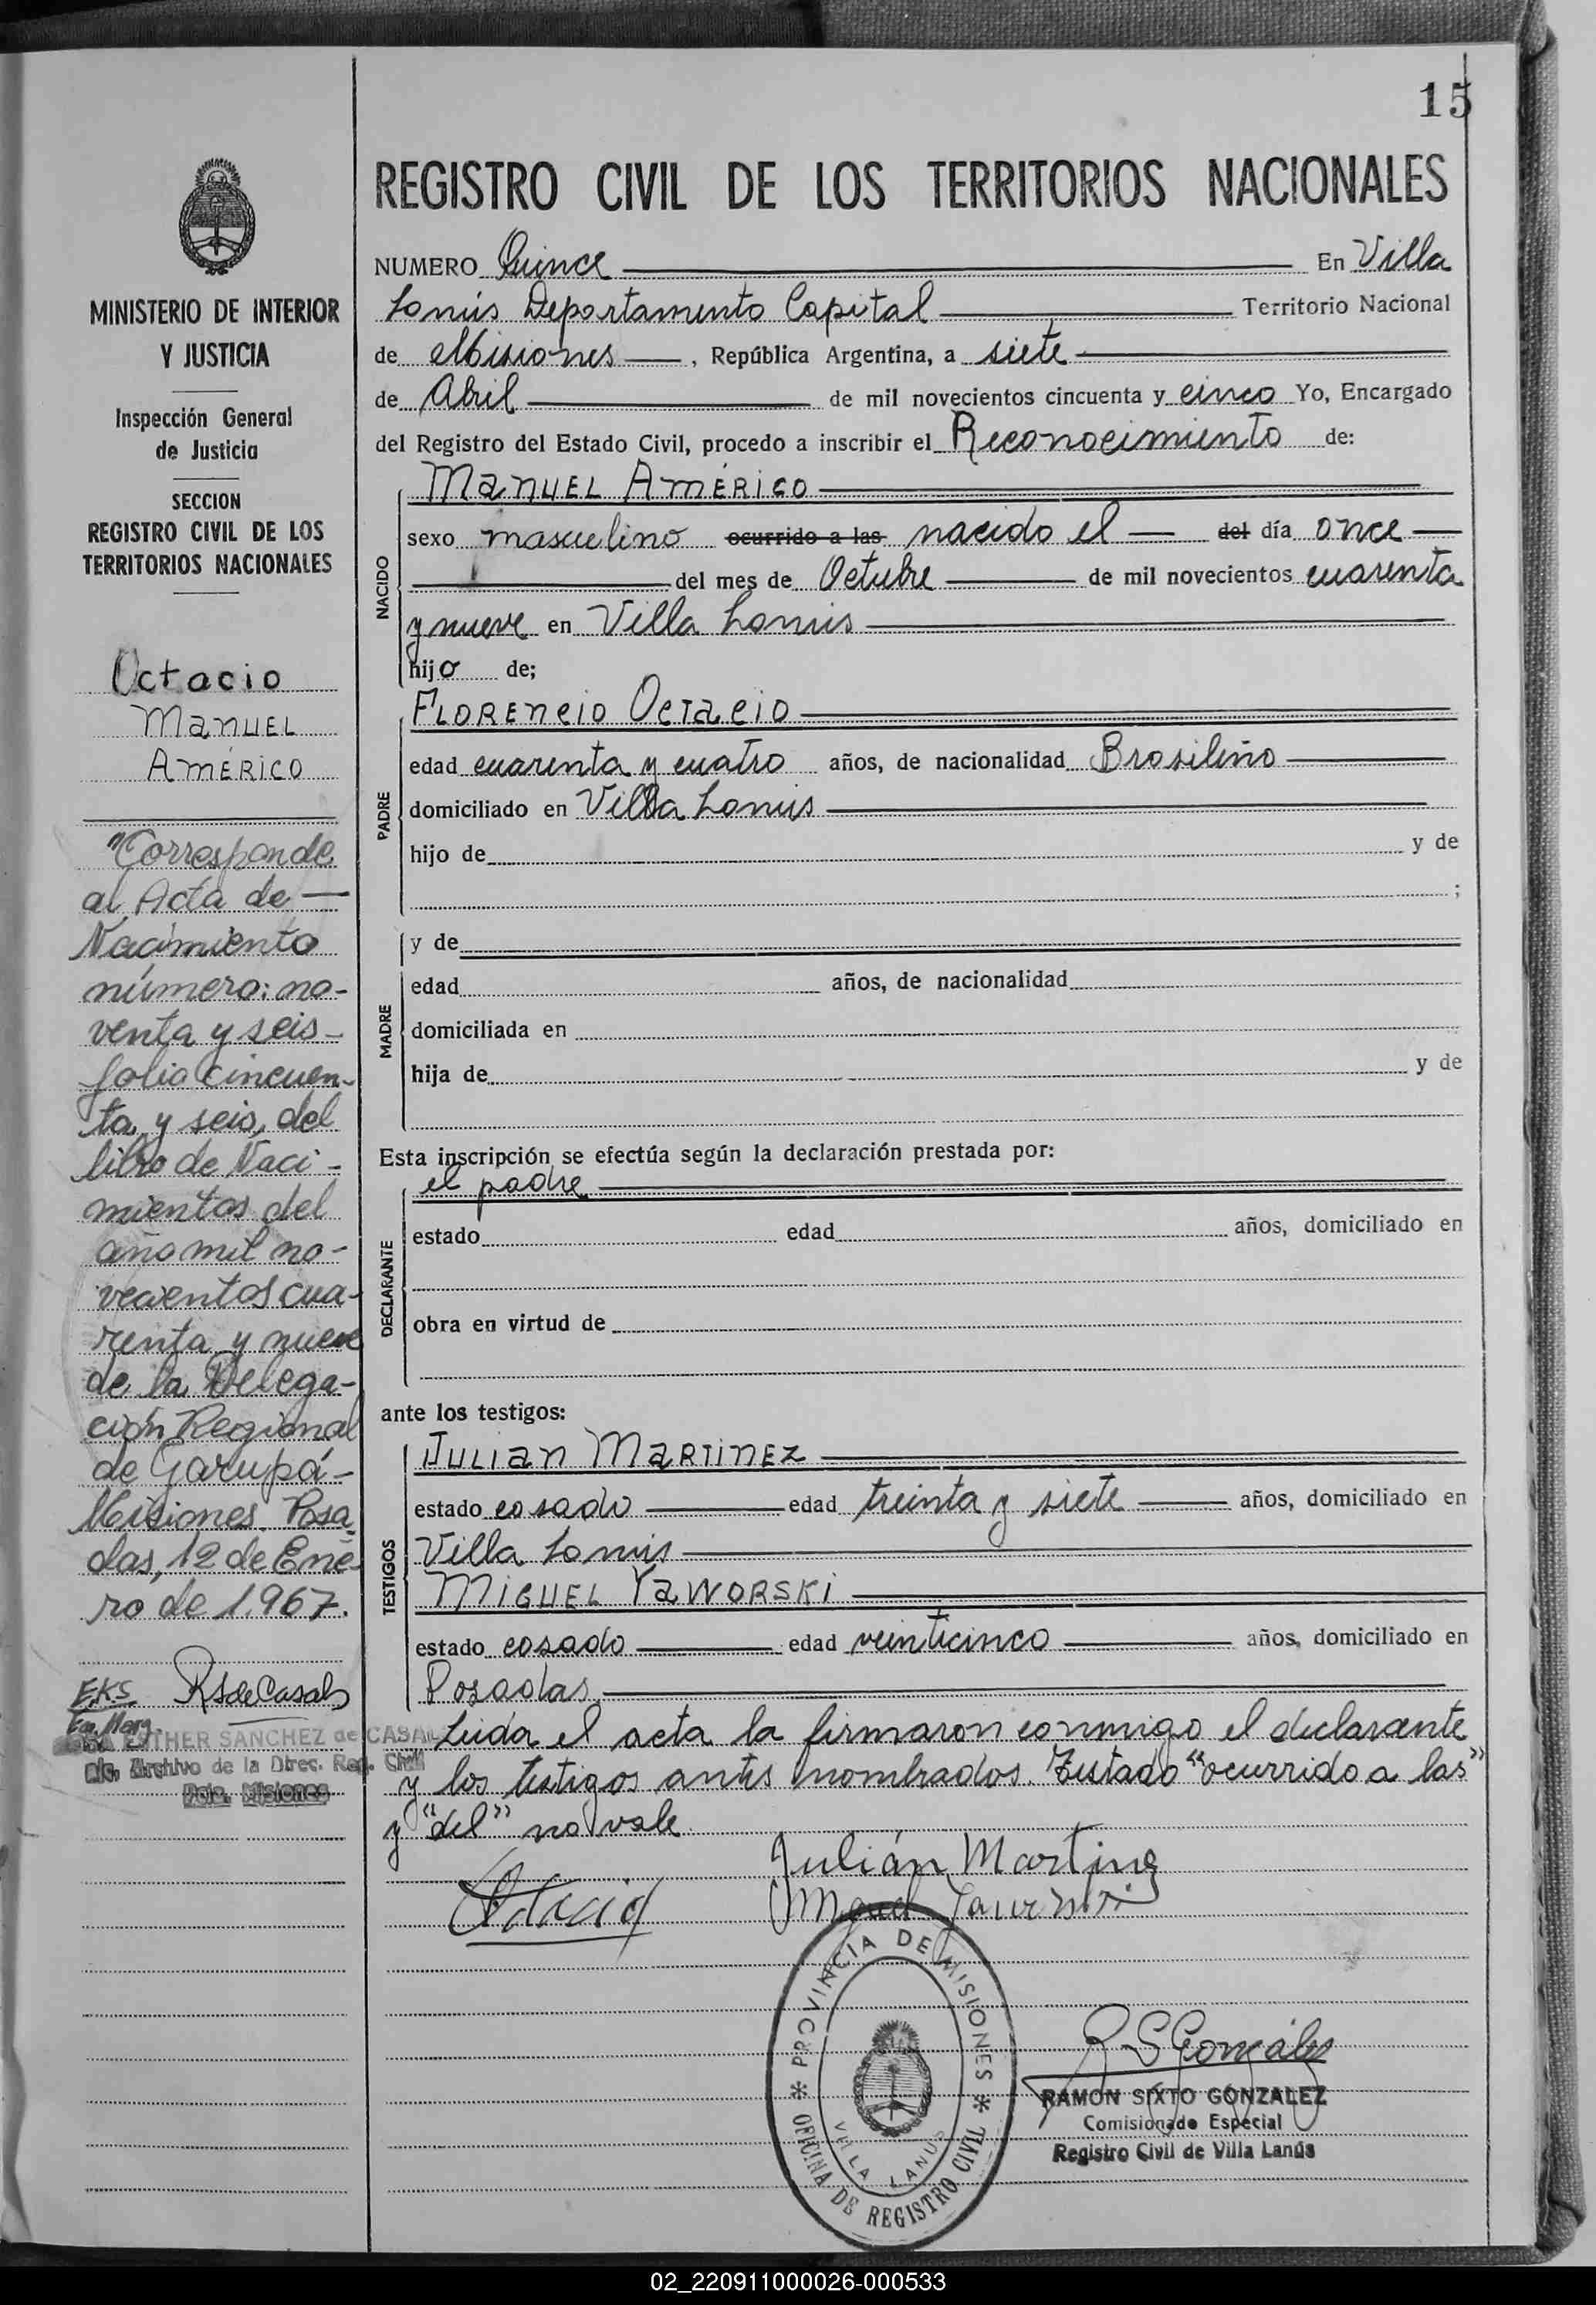 15
REGISTRO CIVIL DE LOS TERRITORIOS NACIONALES
MINISTERIO DE INTERIOR
Y JUSTICIA
Inspección General
de Justicia
SECCION
REGISTRO CIVIL DE LOS
TERRITORIOS NACIONALES
Octacio
MANUEL
AMÉRICO
"Corresponde
al Acta de —
Nacimiento
número: no-
venta y seis -
folio cincuen-
ta y seis, del
libro de Naci-
mientos del
año mil no-
vecientos cua-
renta y nueve
de la Delega-
ción Regional
de Garupá -
Misiones. Posa-
das, 12 de Ene-
ro de 1.967.
E.K.S. RSdeCasals
Enc. Marg.
ESTHER SANCHEZ de CASAL
Archivo de la Direc. Reg. Civil
Pcia. Misiones
NUMERO Quince En Villa
Lanús Departamento Capital Territorio Nacional
de Misiones , República Argentina, a siete
de Abril de mil novecientos cincuenta y cinco Yo, Encargado
del Registro del Estado Civil, procedo a inscribir el Reconocimiento de:
NACIDO
MANUEL AMÉRICO
sexo masculino ocurrido a las nacido el — del día once
del mes de Octubre de mil novecientos cuarenta
y nueve en Villa Lanús
hijo de;
PADRE
FLORENCIO OCTACIO
edad cuarenta y cuatro años, de nacionalidad Brasileño
domiciliado en Villa Lanús
hijo de y de
;
MADRE
y de
edad años, de nacionalidad
domiciliada en
hija de y de
Esta inscripción se efectúa según la declaración prestada por:
DECLARANTE
el padre
estado edad años, domiciliado en
obra en virtud de
ante los testigos:
TESTIGOS
JULIAN MARTINEZ
estado casado edad treinta y siete años, domiciliado en
Villa Lanús
MIGUEL YAWORSKI
estado casado edad veinticinco años, domiciliado en
Posadas
Leida el acta la firmaron conmigo el declarante
y los testigos antes nombrados. Testado "ocurrido a las"
y "del" no vale
Julián Martinez
Octacio Miguel Yaworski
PROVINCIA DE MISIONES
OFICINA DE REGISTRO CIVIL
VILLA LANUS
R S Gonzáles
RAMON SIXTO GONZALEZ
Comisionado Especial
Registro Civil de Villa Lanús
02_220911000026-000533